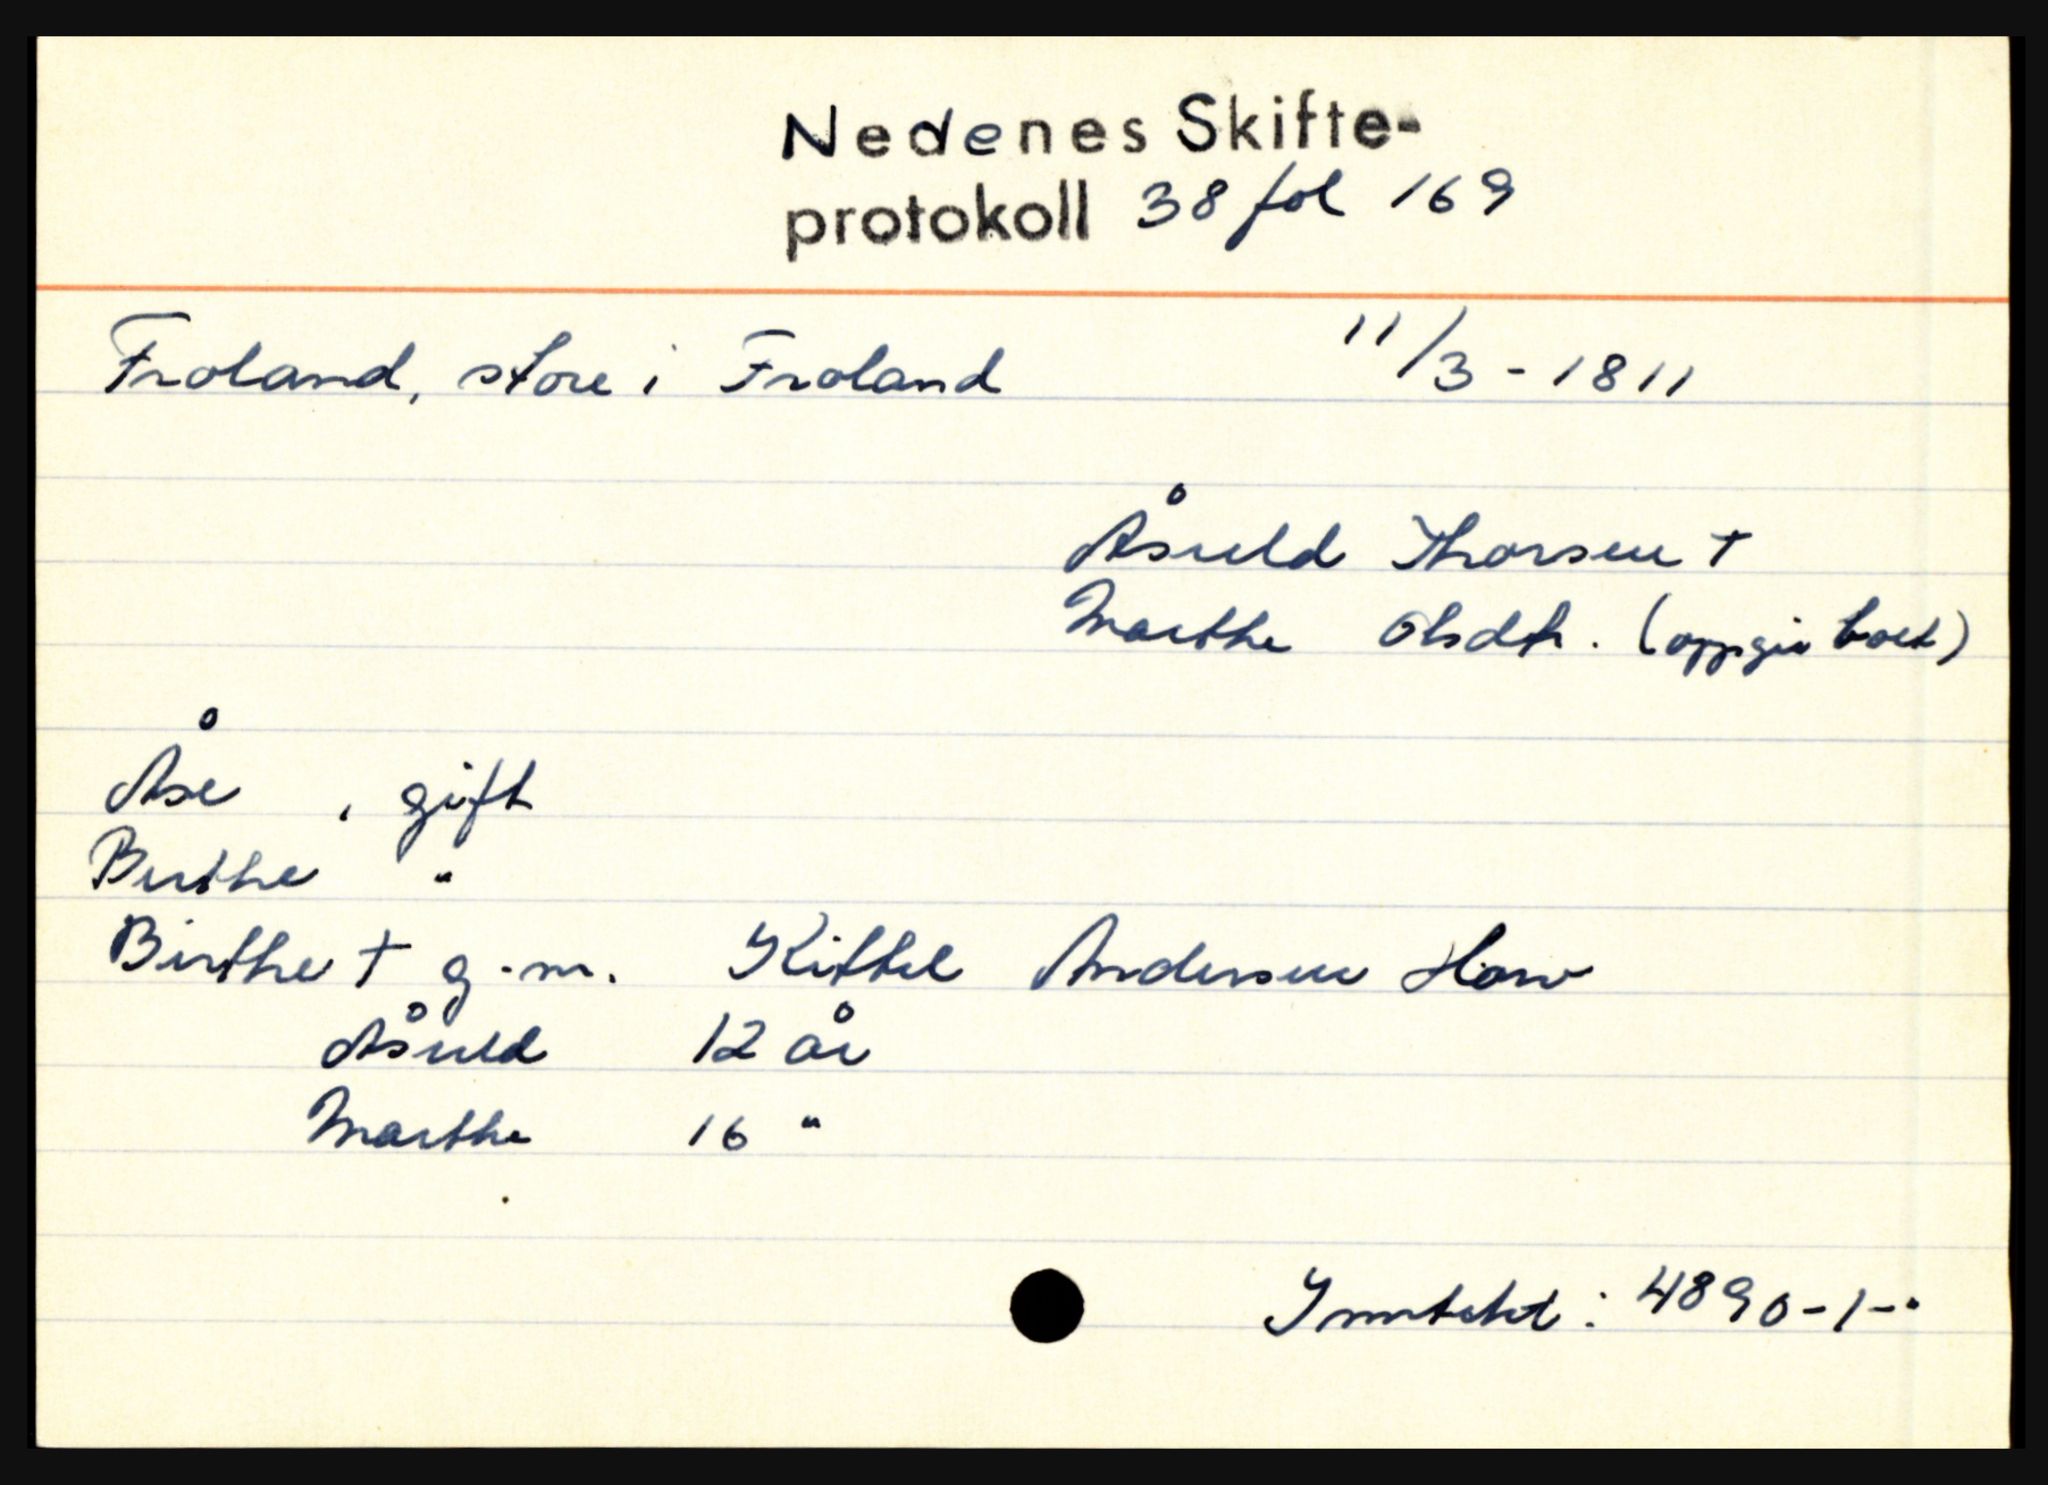 Nedenes Skifte-
protokoll 38 fol 169
Froland, store i Froland 11/3-1811
Åsuld Thorsen †
Marthe Olsdtr. (oppgir boet)
Åse , gift
Berthe "
Birthe † g.m. Kittel Andersen
Åsuld 12 år
Marthe 16 "
Inntekt : 4890-1-"